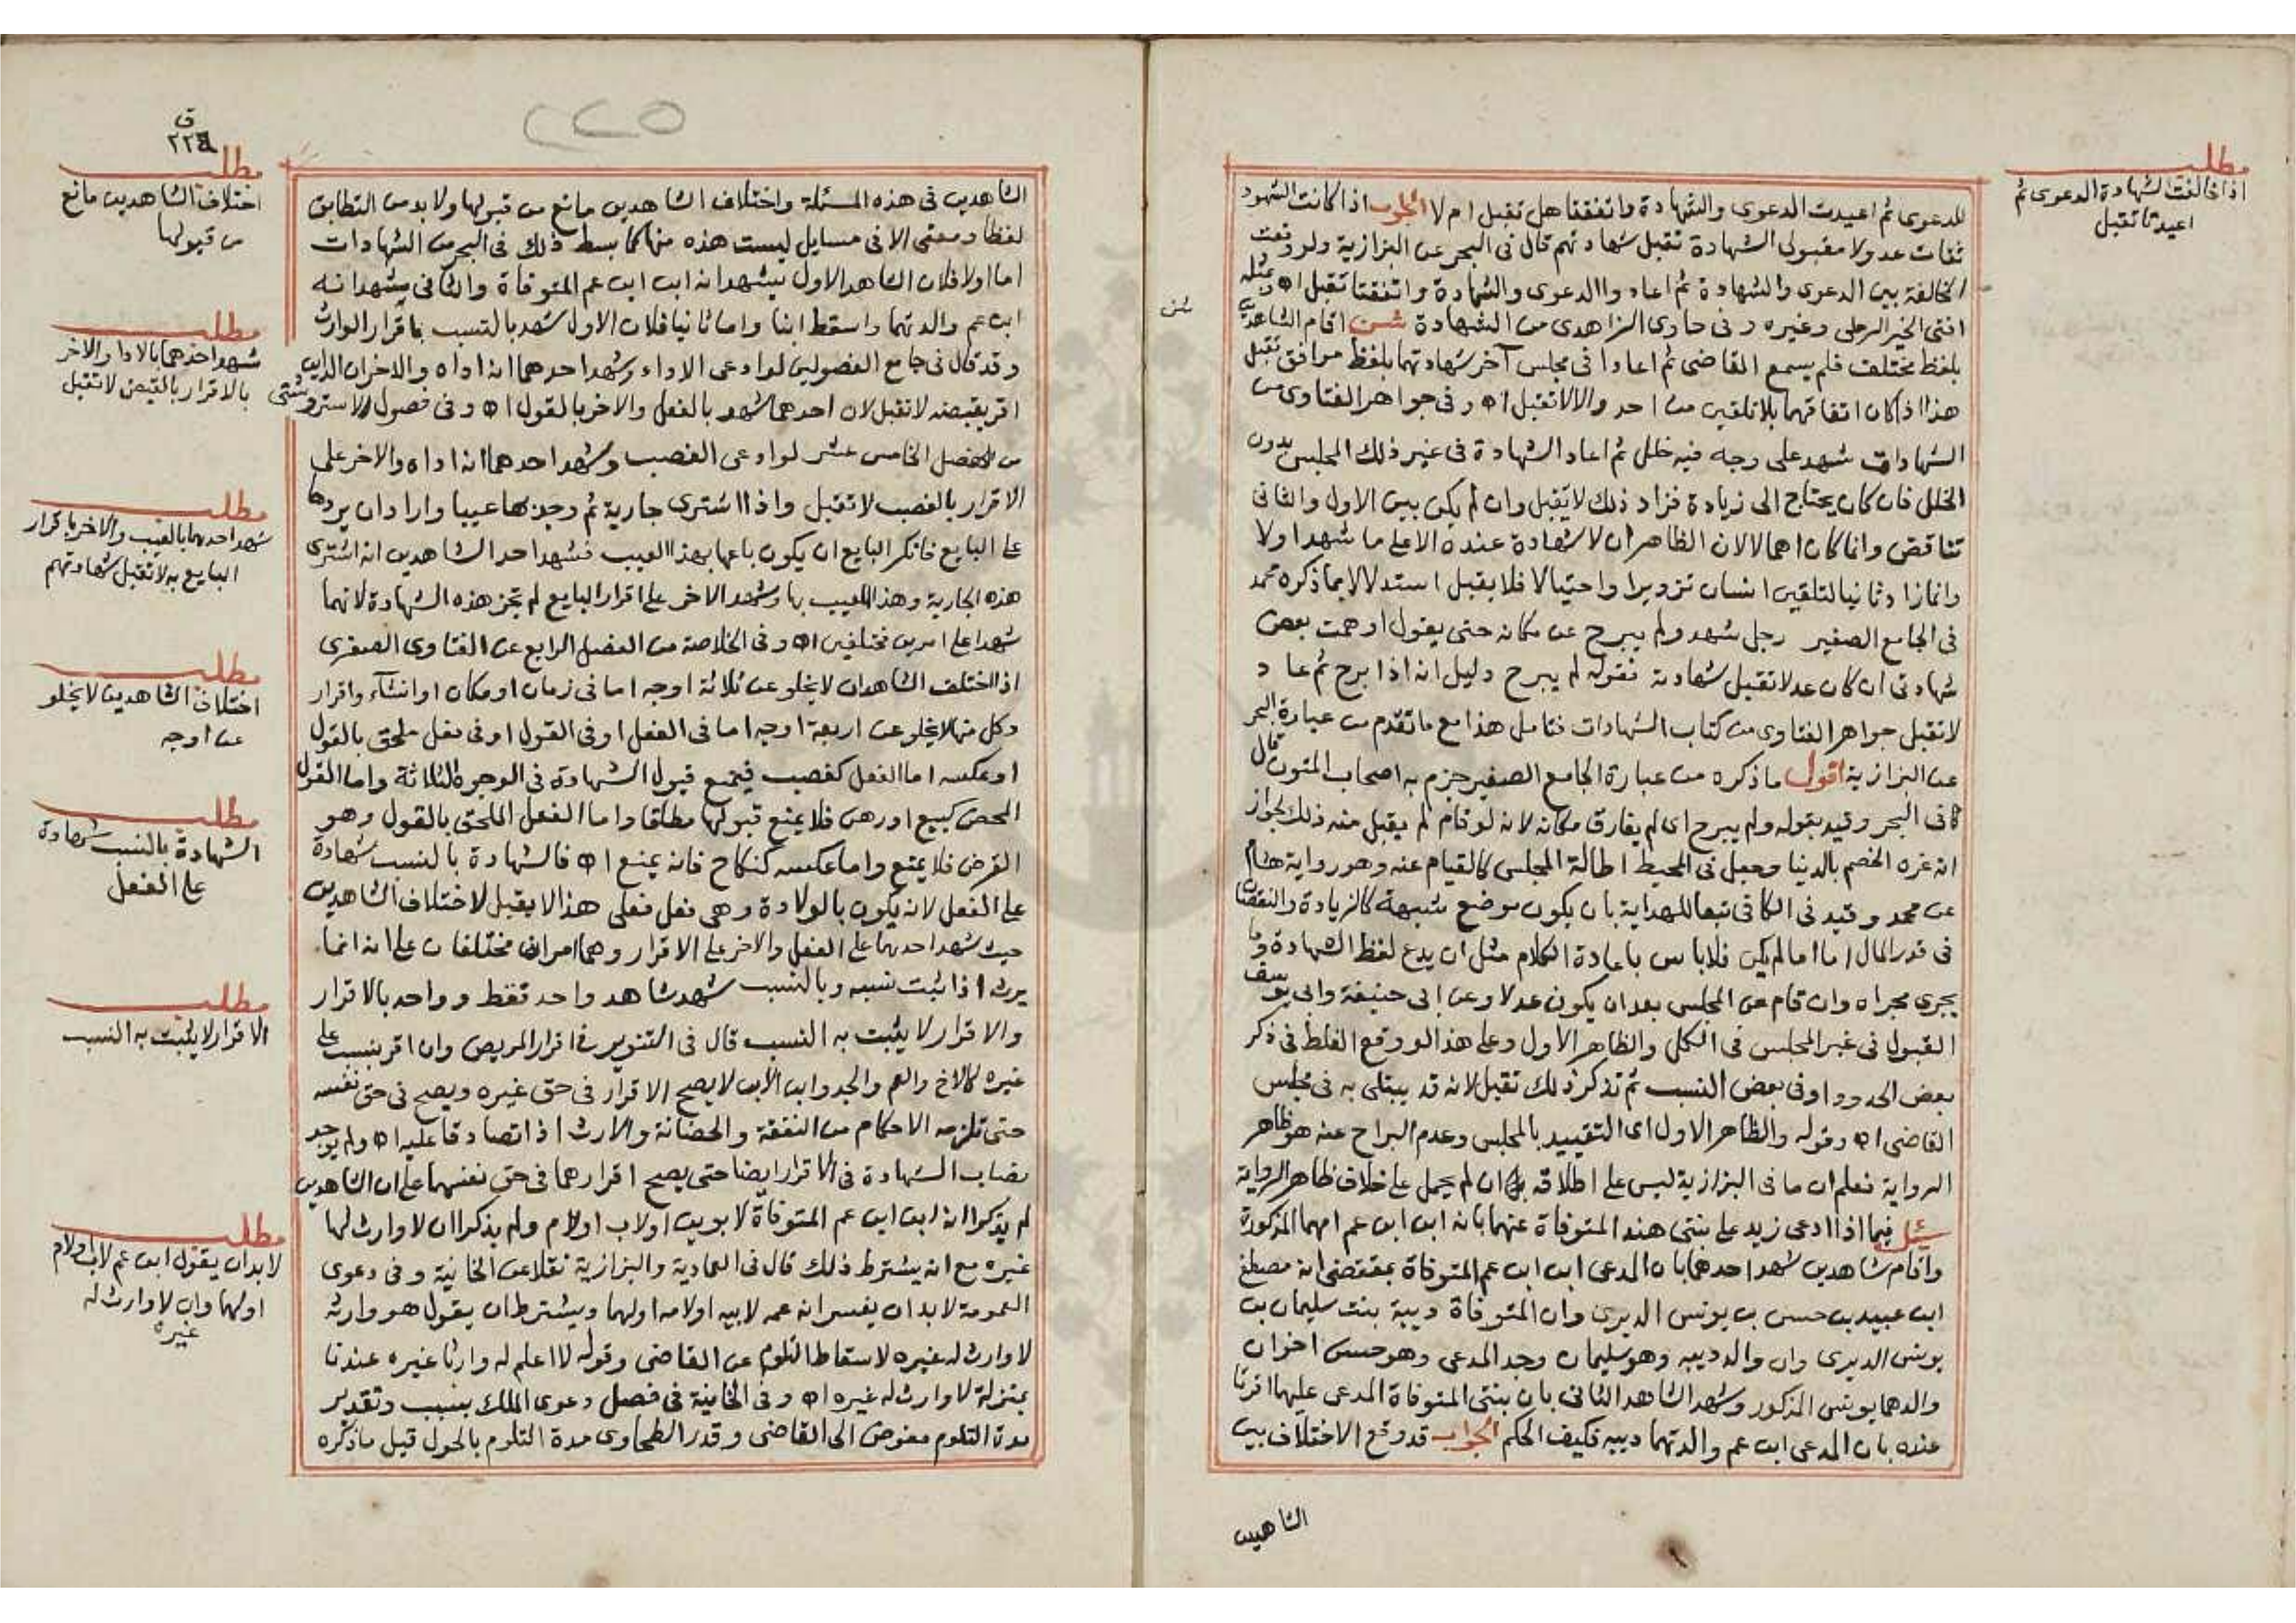 مطلب
اذا خالفت الشهادة الدعوى ثم
اعيدتا تقبل
للدعوى ثم اعيدت الدعوى والشهادة واتفقتا هل تقبل ام لا الجواب اذا كانت الشهود
ثقات عدولا مقبولي الشهادة تقبل شهادتهم قال في البحر عن البزازية ولو وقعت
المخالفة بين الدعوى والشهادة ثم اعادوا الدعوى والشهادة واتفقتا تقبل اه وبمثله
افتى الخير الرملي وغيره وفي حاوي الزاهدي من الشهادة شن اقام الشاهدين
شن
بلفظ مختلف فلم يسمع القاضي ثم اعادا في مجلس آخر شهادتهما بلفظ موافق تقبل
هذا اذا كان اتفاقهما بلا تلقين من احد والا لا تقبل اه وفي جواهر الفتاوى من
الشهادات شهد على وجه فيه خلل ثم اعاد الشهادة في غير ذلك المجلس بدون
الخلل فان كان يحتاج الى زيادة فزاد ذلك لا يقبل وان لم يكن بين الاول والثاني
تناقض وانما كان اهمالا لان الظاهر ان لا شهادة عنده الا على ما شهد اولا
وانما زاد ثانيا لتلقين انسان تزويرا واحتيالا فلا يقبل استدلالا بما ذكره محمد
في الجامع الصغير رجل شهد ولم يبرح عن مكانه حتى يقول اوهمت بعض
شهادتي ان كان عدلا تقبل شهادته فقوله لم يبرح دليل انه اذا برح ثم عاد
لا تقبل جواهر الفتاوى من كتاب الشهادات فتامل هذا مع ما تقدم من عبارة البحر
عن البزازية اقول ما ذكره من عبارة الجامع الصغير جزم به اصحاب المتون قال
في البحر وقيد بقوله ولم يبرح اي لم يفارق مكانه لانه لو قام لم يقبل منه ذلك لجواز
انه غره الخصم بالدنيا وجعل في المحيط اطالة المجلس كالقيام عنه وهو رواية هشام
عن محمد وقيد في الكافي تبعا للهداية بان يكون موضع شبهة كالزيادة والنقصان
في قدر المال اما اذا لم يكن فلا باس باعادة الكلام مثل ان يدع لفظ الشهادة وما
يجري مجراه وان قام عن المجلس بعد ان يكون عدلا وعن ابي حنيفة وابي يوسف
القبول في غير المجلس في الكل والظاهر الاول وعلى هذا لو وقع الغلط في ذكر
بعض الحدود او في بعض النسب ثم تذكر ذلك تقبل لانه قد يبتلى به في مجلس
القاضي اه وقوله والظاهر الاول اي التقييد بالمجلس وعدم البراح عنه هو ظاهر
الرواية فعلم ان ما في البزازية ليس على اطلاقه ان لم يحمل على خلاف ظاهر الرواية
سئل فيما اذا ادعى زيد على بنتي هند المتوفاة عنهما بانه ابن ابن عم امهما المذكورة
واقام شاهدين شهد احدهما بان المدعي ابن ابن عم المتوفاة بمقتضى انه مصطفى
ابن عبيد بن حسن بن يونس الديري وان المتوفاة ديبة بنت سليمان بن
يونس الديري وان والد ديبه وهو سليمان وجد المدعي وهو حسن اخوان
والدهما يونس المذكور وشهد الشاهد الثاني بان بنتي المتوفاة المدعى عليهما اقرتا
عنده بان المدعي ابن عم والدتهما ديبه فكيف الحكم الجواب قد وقع الاختلاف بين
الشاهدين
ق
٢٢٤
٢٢٥
الشاهدين في هذه المسئلة واختلاف الشاهدين مانع من قبولها ولا بد من التطابق
لفظا ومعنى الا في مسايل ليست هذه منها كما بسط ذلك في البحر من الشهادات
اما اولا فلان الشاهد الاول يشهد انه ابن ابن عم المتوفاة والثاني يشهد انه
ابن عم والدتهما واسقط ابنا واما ثانيا فلان الاول شهد بالنسب باقرار الوارث
وقد قال في جامع الفصولين لو ادعى الاداء وشهد احدهما انه اداه والاخر ان الداين
اقر بقبضه لا تقبل لان احدهما شهد بالفعل والاخر بالقول اه وفي فصول الاستروشني
من الفصل الخامس عشر لو ادعى الغصب وشهد احدهما انه اداه والاخر على
الاقرار بالغصب لا تقبل واذا اشترى جارية ثم وجد بها عيبا واراد ان يردها
على البايع فانكر البايع ان يكون باعها بهذا العيب فشهد احد الشاهدين انه اشترى
هذه الجارية وهذا العيب بها وشهد الاخر على اقرار البايع لم تجز هذه الشهادة لانهما
شهدا على امرين مختلفين اه وفي الخلاصة من الفصل الرابع عن الفتاوى الصغرى
اذا اختلف الشاهدان لا يخلو عن ثلاثة اوجه اما في زمان او مكان او انشآء واقرار
وكل منها لا يخلو عن اربعة اوجه اما في الفعل او في القول او في فعل ملحق بالقول
او عكسه اما الفعل كغصب فيمنع قبول الشهادة في الوجوه الثلاثة واما القول
المحض كبيع او رهن فلا يمنع قبولها مطلقا واما الفعل الملحق بالقول وهو
القرض فلا يمنع واما عكسه كنكاح فانه يمنع اه فالشهادة بالنسب شهادة
على الفعل لانه يكون بالولادة وهي فعل فعلى هذا لا يقبل لاختلاف الشاهدين
حيث شهد احدهما على الفعل والاخر على الاقرار وهما امران مختلفان على انه انما
يرث اذا ثبت نسبه وبالنسب شهد شاهد واحد فقط وواحد بالاقرار
والاقرار لا يثبت به النسب قال في التنوير في اقرار المريض وان اقر بنسب على
غيره كالاخ والعم والجد وابن الابن لا يصح الاقرار في حق غيره ويصح في حق نفسه
حتى تلزمه الاحكام من النفقة والحضانة والارث اذا تصادقا عليه اه ولم يوجد
نصاب الشهادة في الاقرار ايضا حتى يصح اقرارهما في حق نفسهما على ان الشاهدين
لم يذكرا انه ابن ابن عم المتوفاة لابوين او لاب او لام ولم يذكرا ان لا وارث لها
غيره مع انه يشترط ذلك قال في العمادية والبزازية نقلا عن الخانية وفي دعوى
العمومة لا بد ان يفسر انه عمه لابيه او لامه او لهما ويشترط ان يقول هو وارثه
لا وارث له غيره لاسقاط التلوم عن القاضي وقوله لا اعلم له وارثا غيره عندنا
بمنزلة لا وارث له غيره اه وفي الخانية في فصل دعوى الملك بسبب وتقدير
مدة التلوم مفوض الى القاضي وقدر الطحاوي مدة التلوم بالحول قيل ما ذكره
مطلب
اختلاف الشاهدين مانع
من قبولها
مطلب
شهد احدهما بالاداء والاخر
بالاقرار بالقبض لا تقبل
مطلب
شهد احدهما بالعيب والاخر باقرار
البايع به لا تقبل شهادتهم
مطلب
اختلاف الشاهدين لا يخلو
عن اوجه
مطلب
الشهادة بالنسب شهادة
على الفعل
مطلب
الاقرار لا يثبت به النسب
مطلب
لا بد ان يقول ابن عم لاب او لام
او لهما وان لا وارث له
غيره